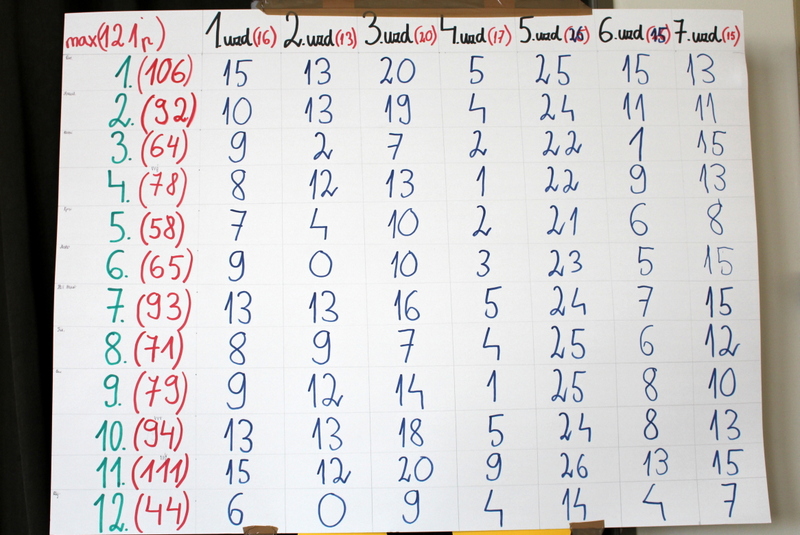 max(121p) 1.uzd(16) 2.uzd(13) 3.uzd(20) 4.uzd(17) 5.uzd(26) 6.uzd(15) 7.uzd(15)
1. (106) 15 13 20 5 25 15 13
2. (92) 10 13 19 4 24 11 11
3. (64) 9 2 7 2 22 1 15
4. (78) 8 12 13 1 22 9 13
5. (58) 7 4 10 2 21 6 8
6. (65) 9 0 10 3 23 5 15
7. (93) 13 13 16 5 24 7 15
8. (71) 8 9 7 4 25 6 12
9. (79) 9 12 14 1 25 8 10
10. (94) 13 13 18 5 24 8 13
11. (111) 15 12 20 9 26 13 15
12. (44) 6 0 9 4 14 4 7